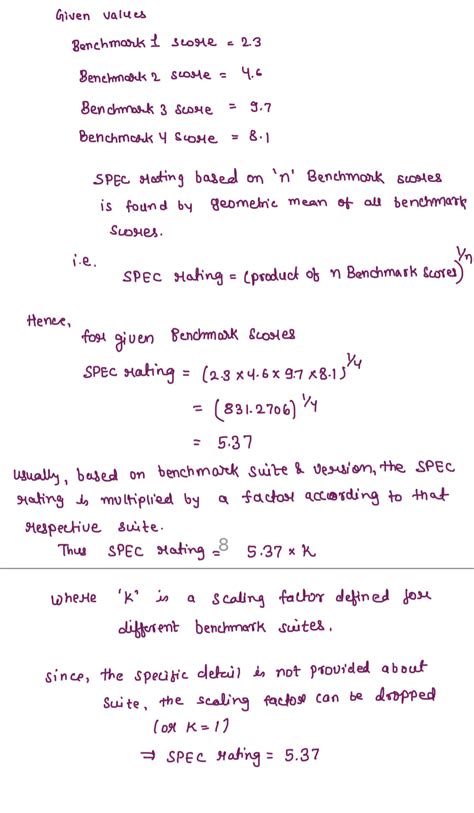 Given values
Benchmark 1 score = 2.3
Benchmark 2 score = 4.6
Benchmark 3 score = 9.7
Benchmark 4 score = 8.1
SPEC rating based on 'n' Benchmark scores
is found by geometric mean of all benchmark
scores.
i.e.
SPEC rating = (product of n Benchmark scores)^1/n
Hence,
for given Benchmark scores
SPEC rating = (2.3 x 4.6 x 9.7 x 8.1)^1/4
= (831.2706)^1/4
= 5.37
usually, based on benchmark suite & version, the SPEC
rating is multiplied by a factor according to that
respective suite.
Thus SPEC rating = 5.37 x K
8
where 'K' is a scaling factor defined for
different benchmark suites.
since, the specific detail is not provided about
suite, the scaling factor can be dropped
(or K = 1)
⇒ SPEC rating = 5.37